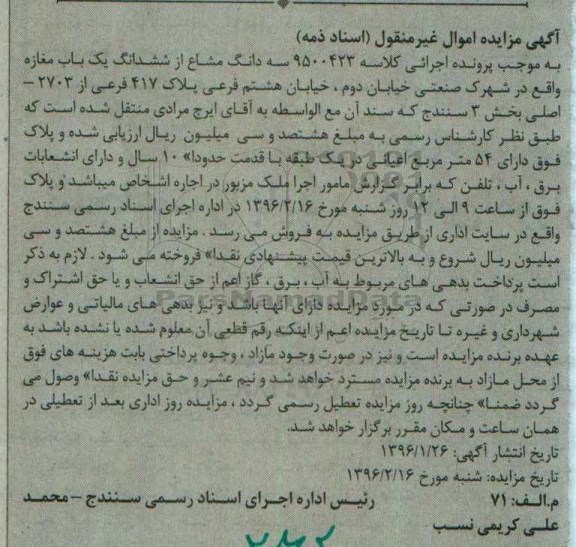 آگهی مزایده اموال غیرمنقول (اسناد ذمه)
به موجب پرونده اجرائی کلاسه ۹۵۰۰۴۲۳ سه دانگ مشاع از ششدانگ یک باب مغازه
واقع در شهرک صنعتی خیابان دوم ، خیابان هشتم فرعی پلاک ۴۱۷ فرعی از ۲۷۰۳ –
اصلی بخش ۳ سنندج که سند آن مع الواسطه به آقای ایرج مرادی منتقل شده است که
طبق نظر کارشناس رسمی به مبلغ هشتصد و سی میلیون ریال ارزیابی شده و پلاک
فوق دارای ۵۴ متر مربع اعیانی در یک طبقه با قدمت حدودا» ۱۰ سال و دارای انشعابات
برق ، آب ، تلفن که برابر گزارش مامور اجرا ملک مزبور در اجاره اشخاص میباشد و پلاک
فوق از ساعت ۹ الی ۱۲ روز شنبه مورخ ۱۳۹۶/۲/۱۶ در اداره اجرای اسناد رسمی سنندج
واقع در سایت اداری از طریق مزایده به فروش می رسد . مزایده از مبلغ هشتصد و سی
میلیون ریال شروع و به بالاترین قیمت پیشنهادی نقدا» فروخته می شود . لازم به ذکر
است پرداخت بدهی های مربوط به آب ، برق ، گاز اعم از حق انشعاب و یا حق اشتراک و
مصرف در صورتی که در مورد مزایده دارای آنها باشد و نیز بدهی های مالیاتی و عوارض
شهرداری و غیره تا تاریخ مزایده اعم از اینکه رقم قطعی آن معلوم شده یا نشده باشد به
عهده برنده مزایده است و نیز در صورت وجود مازاد ، وجوه پرداختی بابت هزینه های فوق
از محل مازاد به برنده مزایده مسترد خواهد شد و نیم عشر و حق مزایده نقدا» وصول می
گردد ضمنا» چنانچه روز مزایده تعطیل رسمی گردد ، مزایده روز اداری بعد از تعطیلی در
همان ساعت و مکان مقرر برگزار خواهد شد.
تاریخ انتشار آگهی: ۱۳۹۶/۱/۲۶
تاریخ مزایده: شنبه مورخ ۱۳۹۶/۲/۱۶
م.الف: ۷۱ رئیس اداره اجرای اسناد رسمی سنندج – محمد
علی کریمی نسب
ParsNamadData